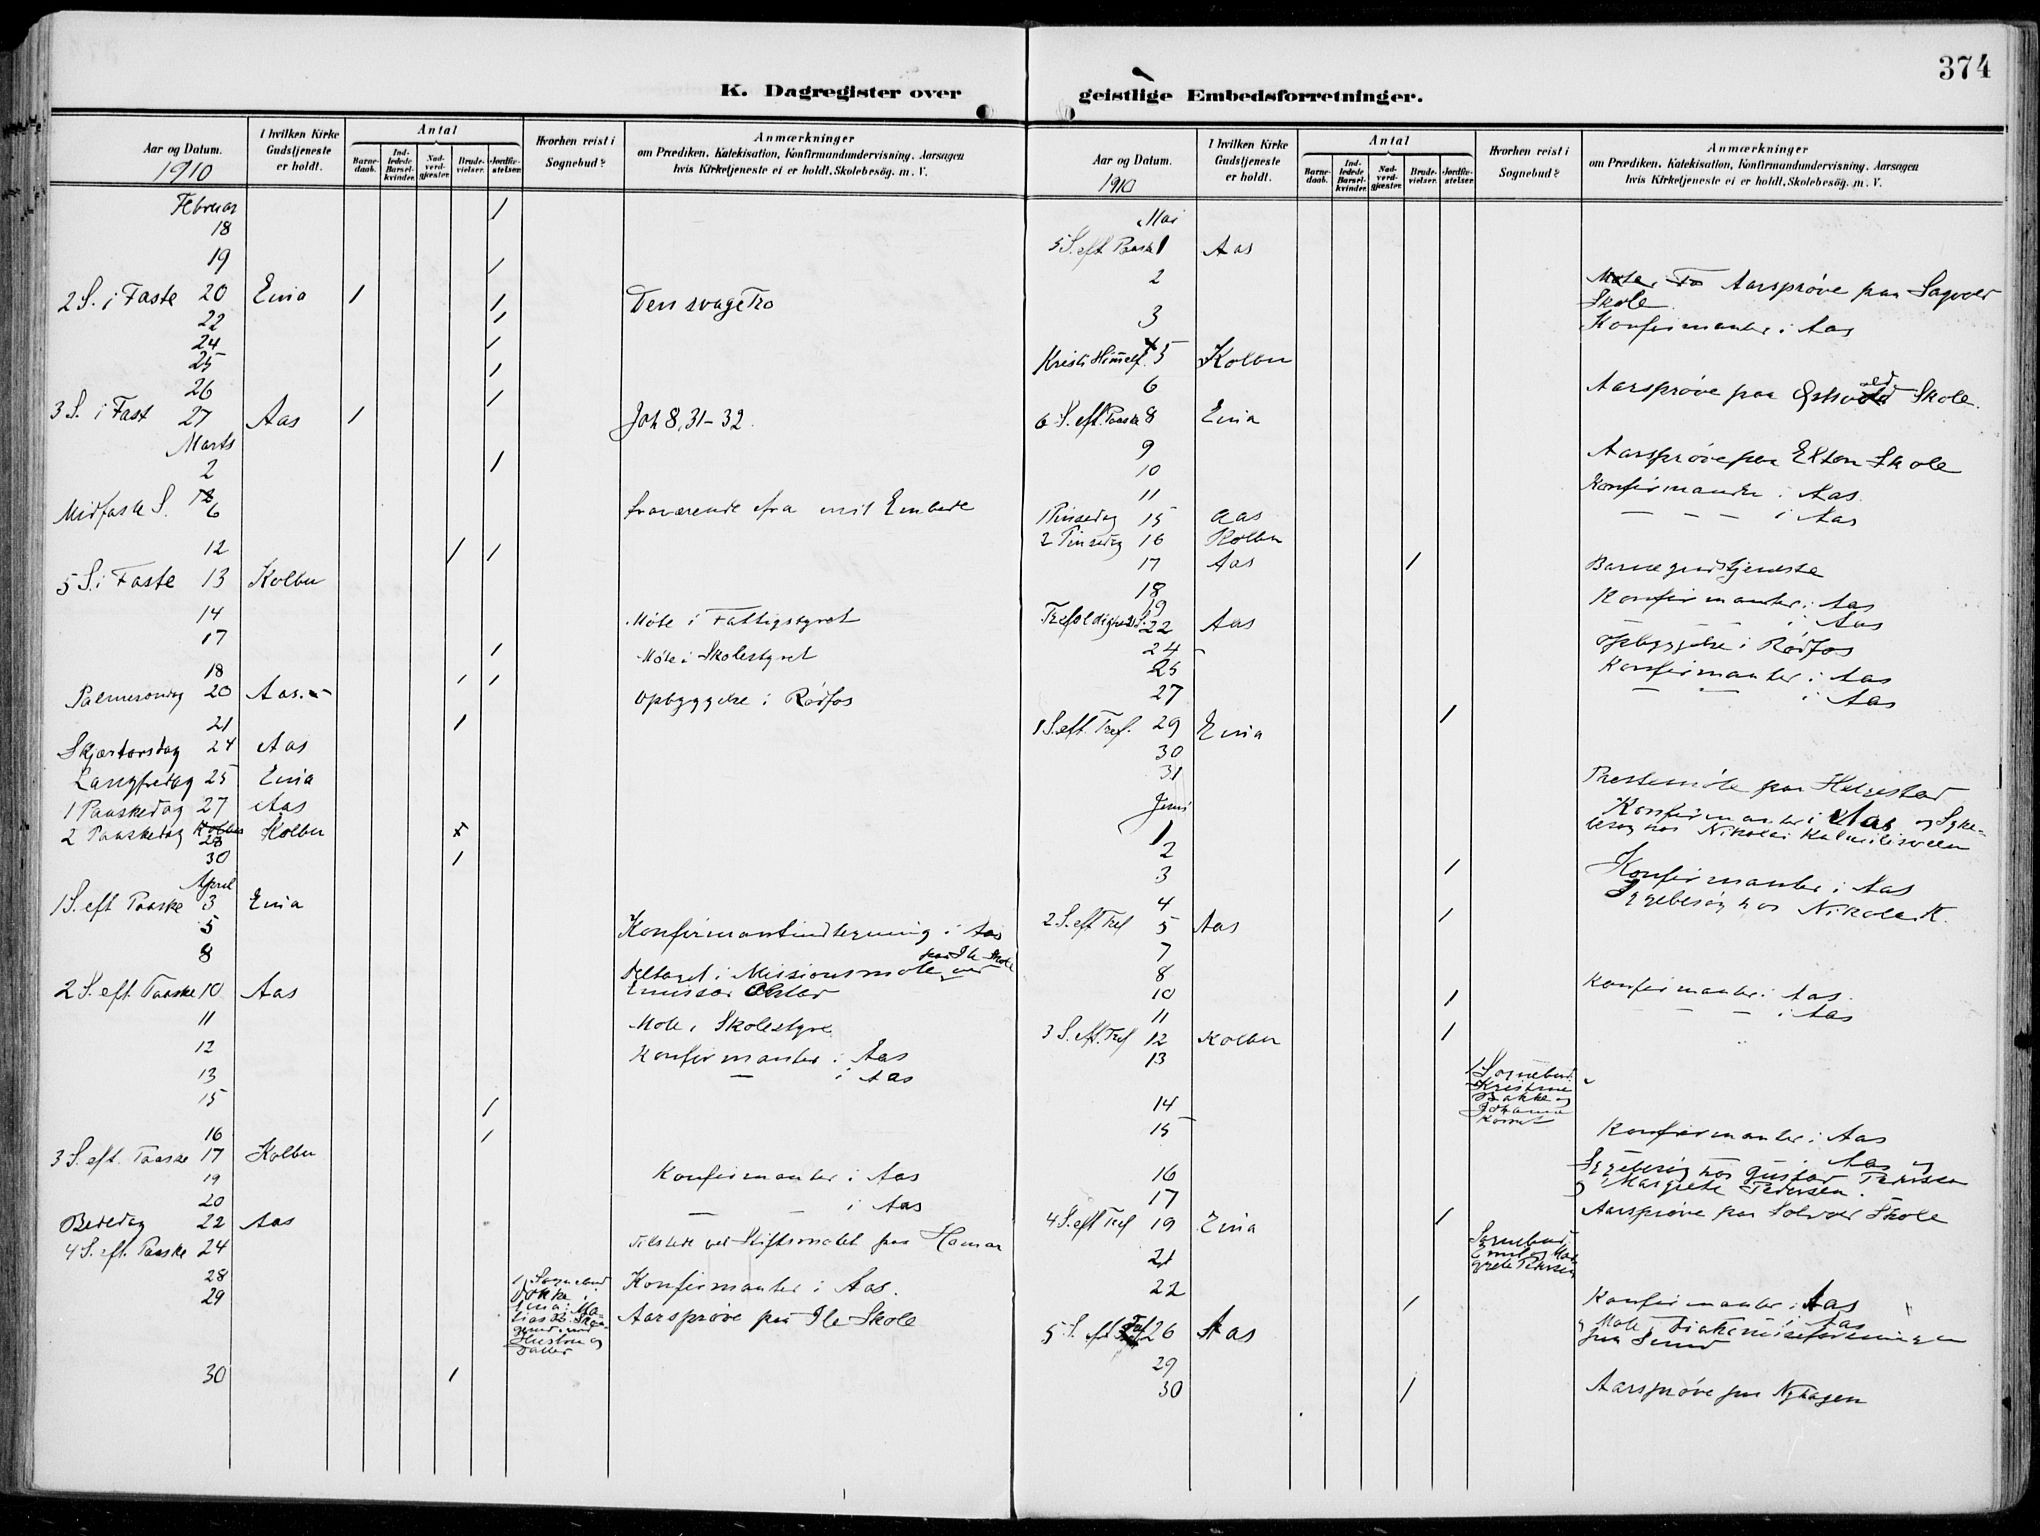 374
K. Dagregister over
Aar og Datum.
1910
I hvilken Kirke Gudstjeneste er holdt.
Antal
Barnedaab.
Indledede Barselkvinder.
Nadverdgjæster.
Brudevielser.
Jordfæstelser.
Hvorhen reist i Sognebud?
Anmærkninger
om Prædiken, Katekisation, Konfirmandundervisning, Aarsagen
hvis Kirketjeneste ei er holdt, Skolebesøg. m. V.
Februar /
18
19 /
2 S. i Faste 20 Eina / / Den svage Tro
22 /
24 /
25 /
26 /
3 S. i Fast 27 Aas / Joh 8, 31-32.
Marts
2 /
Midfaste S. 6 fraværende fra mit Embede
12 / /
5 S. i Faste 13 Kolbu
14 Møte i Fattigstyret
17 / Møte i Skolestyret
18 / /
Palmesøndag 20 Aas. Opbyggelse i Rødfos
21 /
Skjærtorsdag 24 Aas
Langfredag 25 Eina
1 Paaskedag 27 Aas
2 Paaskedag 28 Kolbu
30 /
April
1 S. eft Paaske 3 Eina
5 Konfirmantindtegning i Aas
8 Deltaget i Missionsmøte paa Ile Skole
2 S. eft. Paaske 10 Aas Emissær
11 Møte i Skolestyre
12 Konfirmanter i Aas
13 — i Aas
15 /
16 /
3 S. eft. Paaske 17 Kolbu
19 Konfirmanter i Aas
20 — — i Aas
Bededag 22 Aas
4 S. eft. Paaske 24 Tilstede ved Stiftsmøtet paa Hamar
28 1 Sognebud Konfirmanter i Aas.
29 Aarsprøve paa Ile Skole
Hustru og
Datter
30 /
geistlige Embedsforretninger.
Aar og Datum.
1910
I hvilken Kirke Gudstjeneste er holdt.
Antal
Barnedaab.
Indledede Barselkvinder.
Nadverdgjæster.
Brudevielser.
Jordfæstelser.
Hvorhen reist i Sognebud?
Anmærkninger
om Prædiken, Katekisation, Konfirmandundervisning, Aarsagen
hvis Kirketjeneste ei er holdt, Skolebesøg. m. V.
Mai
5 S. eft. Paaske 1 Aas
2 Aarsprøve paa Sagvold
Skole
3 Konfirmanter i Aas
Kristi Himmelf. 5 Kolbu
6 Aarsprøve paa Skole.
6 S. eft. Paaske 8 Eina
9 Aarsprøve paa Elton Skole
10 Konfirmanter i Aas.
11 — — — i Aas
1 Pinsedag 15 Aas
2 Pinsedag 16 Kolbu
17 Aas / Barnegudstjeneste
18 Konfirmanter i Aas
19 i Aas
Trefoldigheds S. 22 Aas Opbyggelse i Rødfos
24 Konfirmanter i Aas
25 — — i Aas
27 /
1 S. eft. Tref. 29 Eina
30 Prestemøte paa
31 Konfirmanter i Aas og Syke-
besøg hos Nikolai
Juni
1
2 / Konfirmanter i Aas
3 Sygebesøg hos Nikolai K.
4 /
2 S. eft Tref 5 Aas
7 Konfirmanter i Aas.
8 — — — i Aas
10 /
11 /
3 S. eft. Tref 12 Kolbu
13 1 Sognebud.
Kristine
Bakke og
Johanna
14
15 Konfirmanter i Aas
16 i Aas og
Sygebesøg hos Gustav Pedersen
og Margrete Pedersen.
17 Aarsprøve paa Skole
4 S. eft Tref 19 Eina /
21 Sognebud.
Emil og Mar-
grete Pedersen
22 Konfirmanter i Aas
5 S. eft Tref 26 Aas / i Aas
og Møte i Diakonisseforeningen
29
30 / Aarsprøve paa Nyhagen